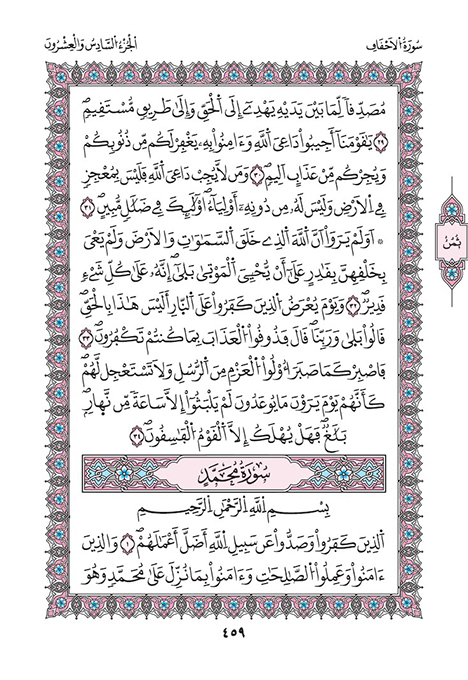 سُورَةُ اُلَاحْقَافِ
اَلْجُزْءُ السَّادِسُ وَالْعِشْرُونَ
مُصَدِّقاً لِّمَا بَيْنَ يَدَيْهِ يَهْدِےٓ إِلَى اَلْحَقِّ وَإِلَىٰ طَرِيقٍ مُّسْتَقِيمٍۖ
٢٩ يَٰقَوْمَنَآ أَجِيبُواْ دَاعِيَ اَللَّهِ وَءَامِنُواْ بِهِۦ يَغْفِرْ لَكُم مِّن ذُنُوبِكُمْ
وَيُجِرْكُم مِّنْ عَذَابٍ اَلِيمٍۖ ٣٠ وَمَن لَّا يُجِبْ دَاعِيَ اَللَّهِ فَلَيْسَ بِمُعْجِزٍ
فِي اِلَارْضِ وَلَيْسَ لَهُۥ مِن دُونِهِۦٓ أَوْلِيَآءُۖ اوْلَٰٓئِكَ فِي ضَلَٰلٍ مُّبِينٍۖ ٣١
۞ اَوَلَمْ يَرَوَاْ اَنَّ اَللَّهَ اَلذِے خَلَقَ اَلسَّمَٰوَٰتِ وَالَارْضَ وَلَمْ يَعْيَ
بِخَلْقِهِنَّ بِقَٰدِرٍ عَلَىٰٓ أَنْ يُّحْيِيَ اَلْمَوْتَىٰ بَلَىٰٓۖ إِنَّهُۥ عَلَىٰ كُلِّ شَےْءٍ
قَدِيرٌۖ ٣٢ وَيَوْمَ يُعْرَضُ اُلذِينَ كَفَرُواْ عَلَى اَلنّ۪ارِ أَلَيْسَ هَٰذَا بِالْحَقِّۖ
قَالُواْ بَلَىٰ وَرَبِّنَاۖ قَالَ فَذُوقُواْ اُلْعَذَابَ بِمَا كُنتُمْ تَكْفُرُونَۖ ٣٣
فَاصْبِرْ كَمَا صَبَرَ أُوْلُواْ اُلْعَزْمِ مِنَ اَلرُّسُلِ وَلَا تَسْتَعْجِل لَّهُمْۖ
كَأَنَّهُمْ يَوْمَ يَرَوْنَ مَا يُوعَدُونَ لَمْ يَلْبَثُوٓاْ إِلَّا سَاعَةً مِّن نَّه۪ارِۖ
بَلَٰغٌۖ فَهَلْ يُهْلَكُ إِلَّا اَلْقَوْمُ اُلْفَٰسِقُونَۖ ٣٤
ثُمُنْ
سُورَةُ مُحَمَّدٍ
بِسْمِ اِللَّهِ اِلرَّحْمَٰنِ اِلرَّحِيمِ
اَلذِينَ كَفَرُواْ وَصَدُّواْ عَن سَبِيلِ اِللَّهِ أَضَلَّ أَعْمَٰلَهُمْۖ ١ وَالذِينَ
ءَامَنُواْ وَعَمِلُواْ اُلصَّٰلِحَٰتِ وَءَامَنُواْ بِمَا نُزِّلَ عَلَىٰ مُحَمَّدٍ وَهُوَ
٤٥٩